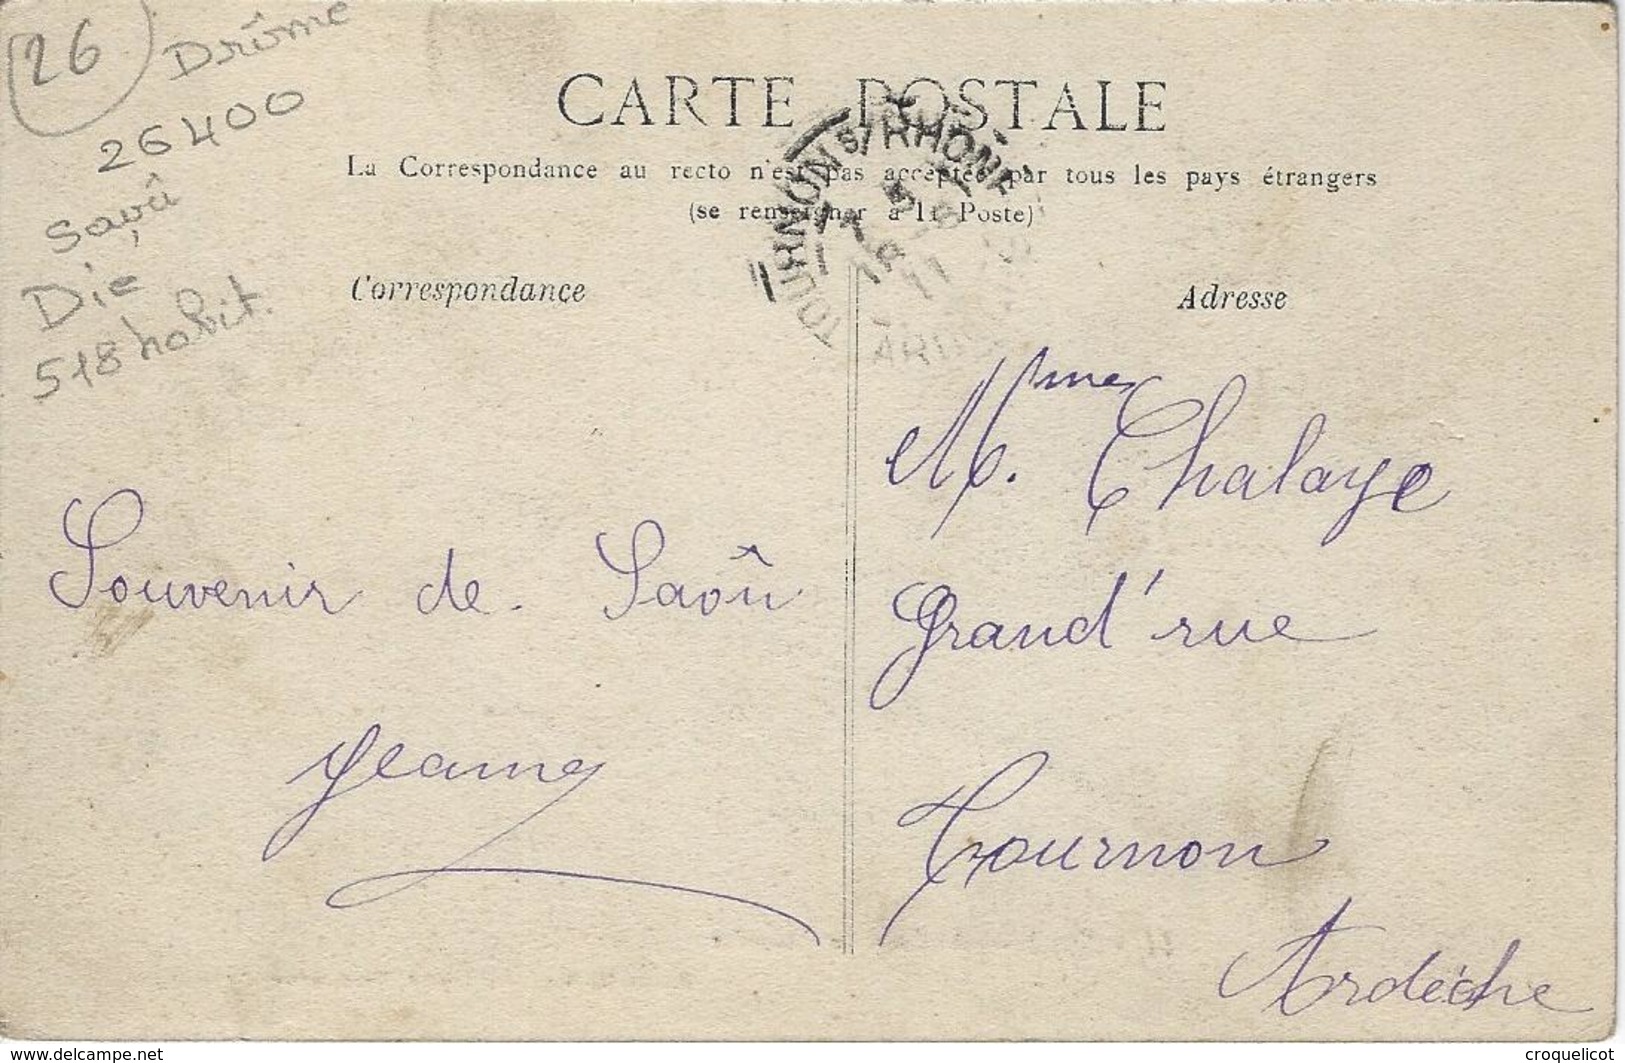 26
Drôme
26400
Saoû
Die
518 habit.
CARTE POSTALE
La Correspondance au recto n'est pas acceptée par tous les pays étrangers
(se renseigner à la Poste)
TOURNON S/ RHÔNE
Correspondance
Adresse
Souvenir de Saoû
Jeanne
Mme Chalaye
Grand'rue
Tournon
Ardèche
www.delcampe.net
croquelicot